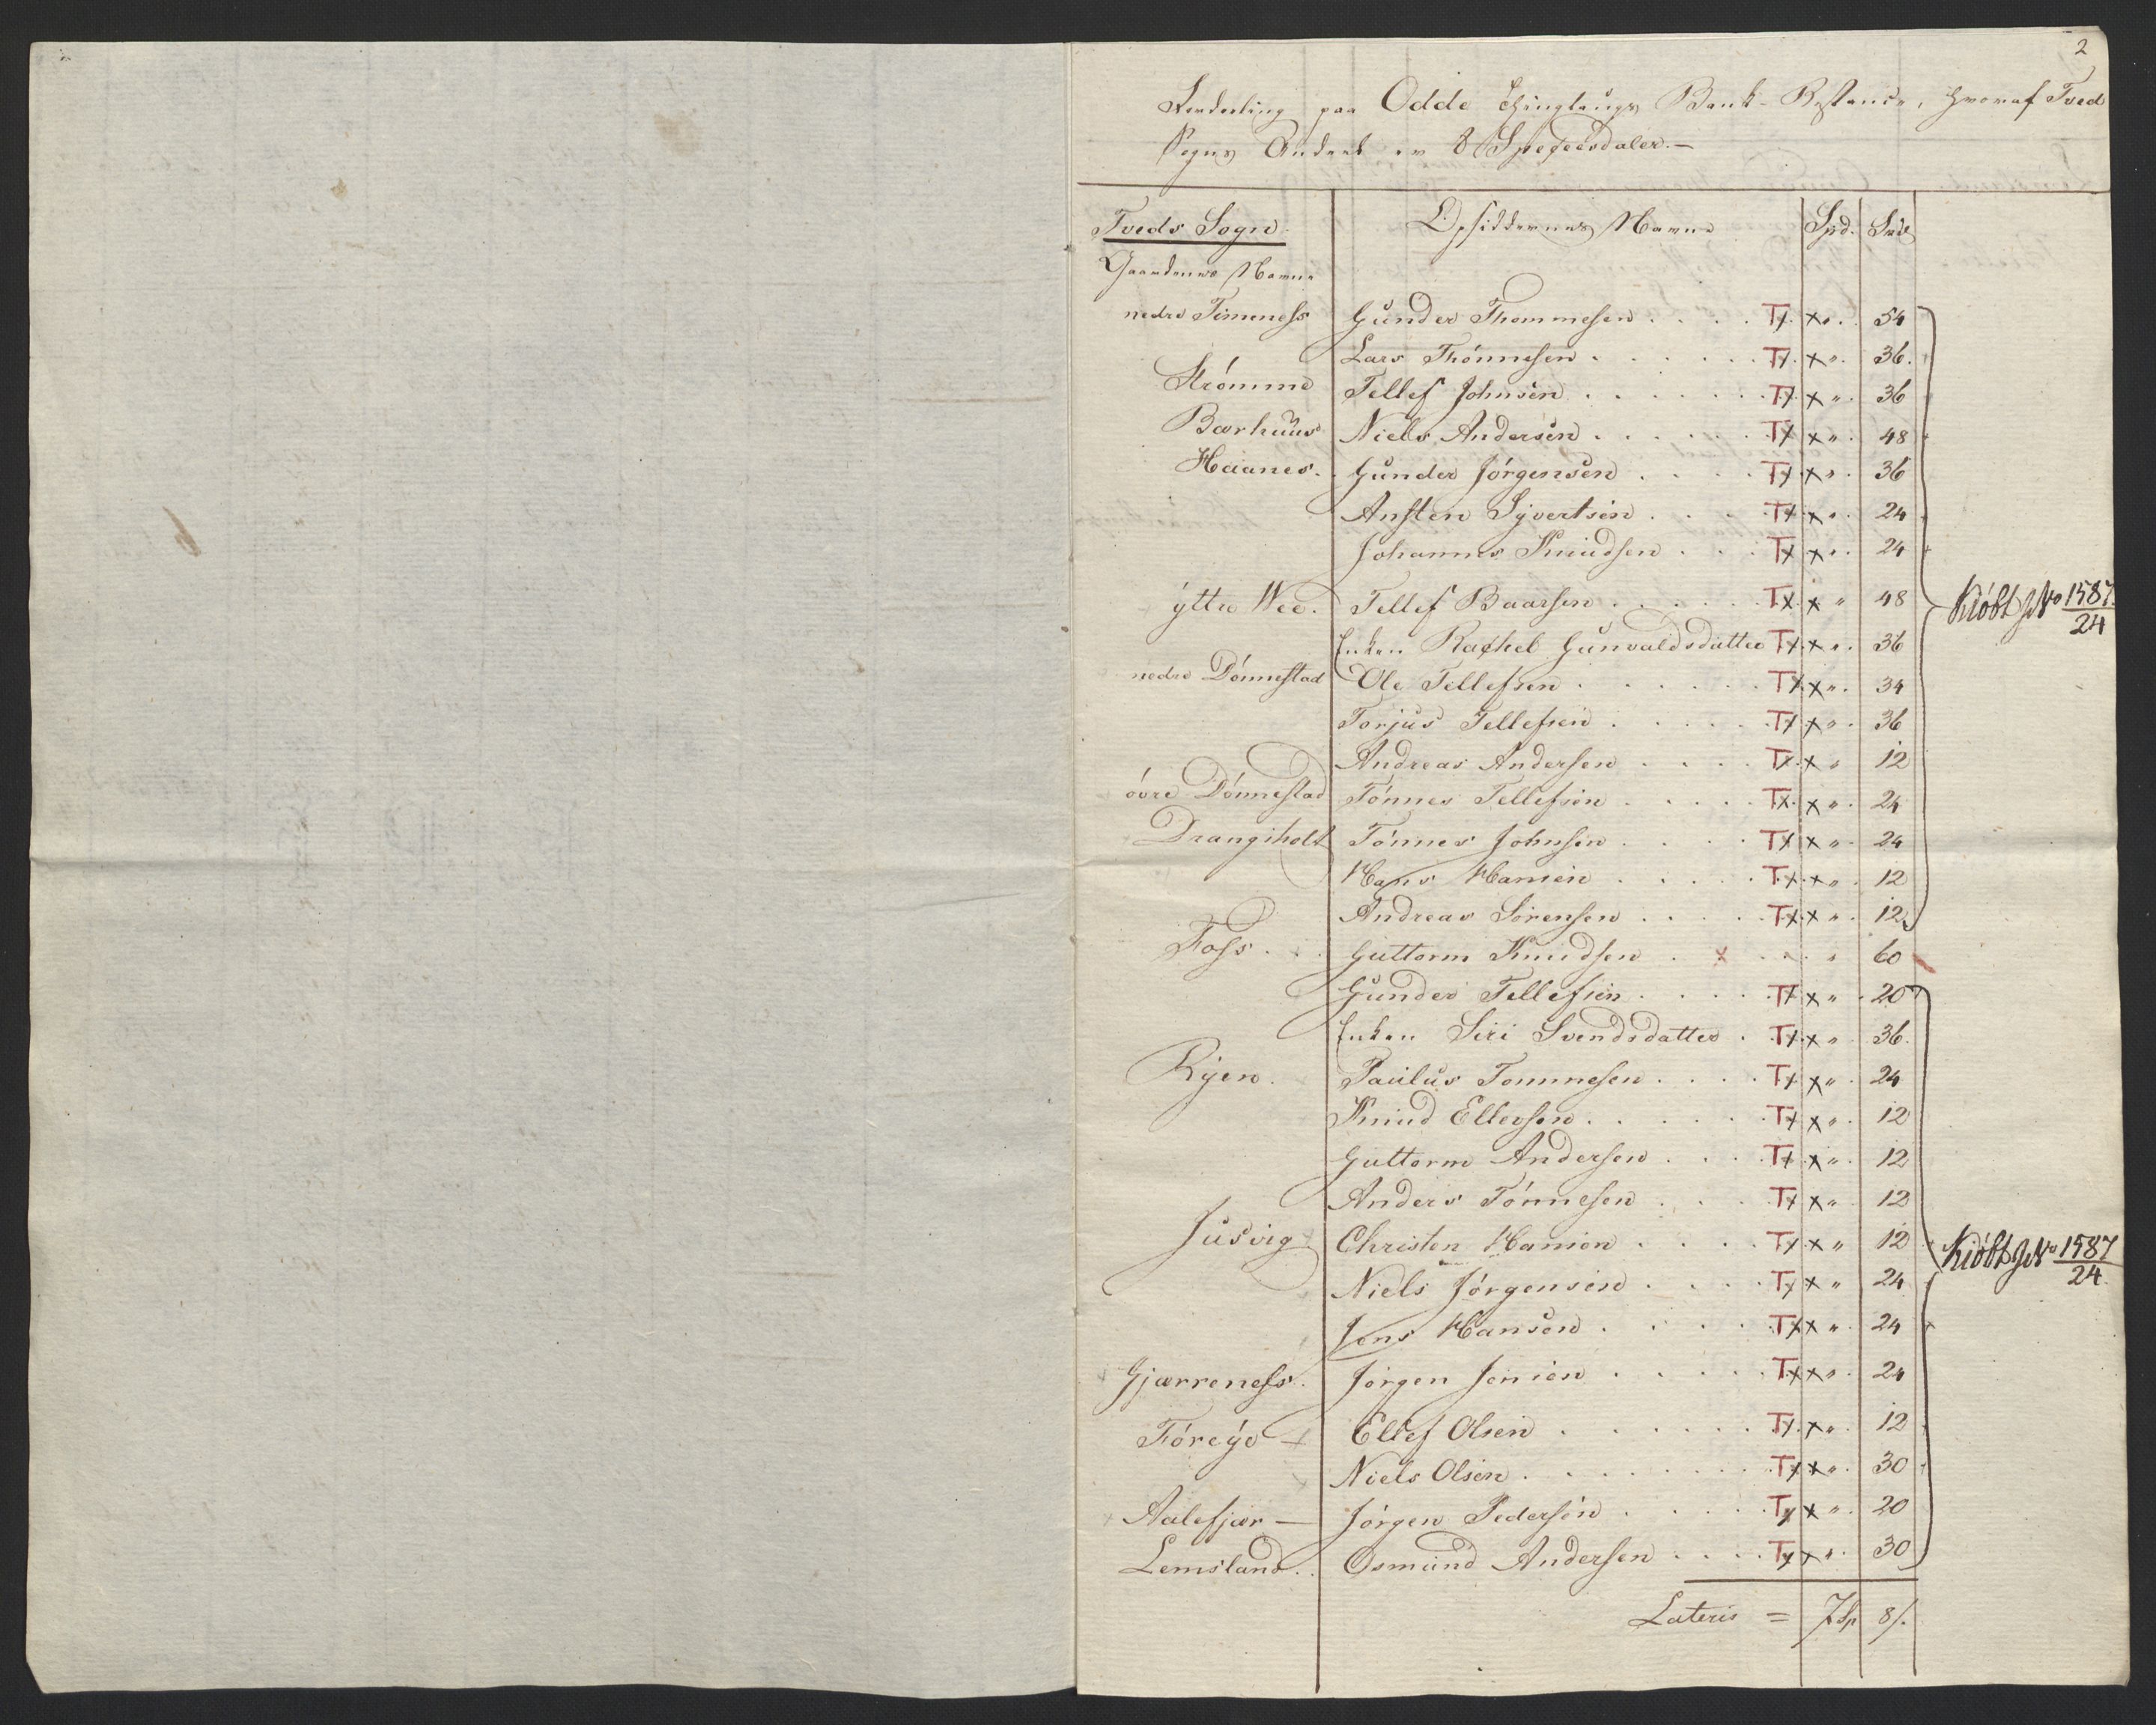 2
Inddeling paa Odde Thinglaugs Bank-Restance, hvoraf Tved
Sogns Andeel er 8 Spesiesdaler.—
Tveds Sogn. Opsiddernes Navne Spd. Skil
Gaardenes Navne
nedre Timeness Gunder Thommesen . . . . Tx. x „ . 54
Lars Thönnesen . . . . . Tx. x „ . 36.
Strömme Tellef Johnsen . . . . . . . Tx. x „ . 36
Barhuus Niels Andersen . . . . . . Tx x „ . 48
Haanes. Gunder Jörgensen . . . . Tx x „ . 36
Ansten Syvertsen . . . . Tx. x „ . 24
Johannes Knudsen . . . Tx x „ . 24
ÿttre Wee. Tellef Baarsen . . . . . . Tx. x „ 48 Kiöbt J No 1587/24
Enken Rachel Gunvaldsdatter Tx. x „ . 36
nedre Dönnestad Ole Tellefsen . . . . . . Tx. x „ . 34
Torjus Tellefsen . . . . . Tx x „ . 36
Andreas Andersen . . . . Tx. x „ 12
övre Dönnestad Tönnes Tellefsen . . . . . Tx. x „ . 24
Drangsholt Tönnes Johnsen . . . . Tx x „ . 24
Hans Hansen . . . . . Tx. x „ . 12
Andreas Sörensen . . . . . Tx x „ . 12
Foss . . . Guttorm Knudsen . x . . . „ 60
Gunder Tellefsen . . . . . Tx x „ . 20
Enken Siri Svendsdatter . Tx. x „ . 36.
Ryen. Paulus Tommesen . . . . Tx x „ . 24
Knud Ellevsen . . . . . . Tx x „ . 12
Guttorm Andersen . . . . Tx. x „ . 12
Anders Tönnesen . . . . Tx x „ . 12
Jusvig Christen Hansen . . . . Tx. x „ 12 Kiöbt J No 1587/24.
Niels Jörgensen . . . . Tx x „ 24
Jens Hansen . . . . . Tx x „ . 24
Gjærreness. Jörgen Jensen . . . . . Tx x „ . 24
Föreÿe — Ellef Olsen . . . . . . Tx. x „ . 12
Niels Olsen . . . . . . . . Tx x „ . 30
Aalefjær — Jörgen Pedersen . . . . . Tx x „ . 20
Lemsland . . Osmund Andersen . . . . Tx x „ . 30
Lateris = 7 Sp 8 /.